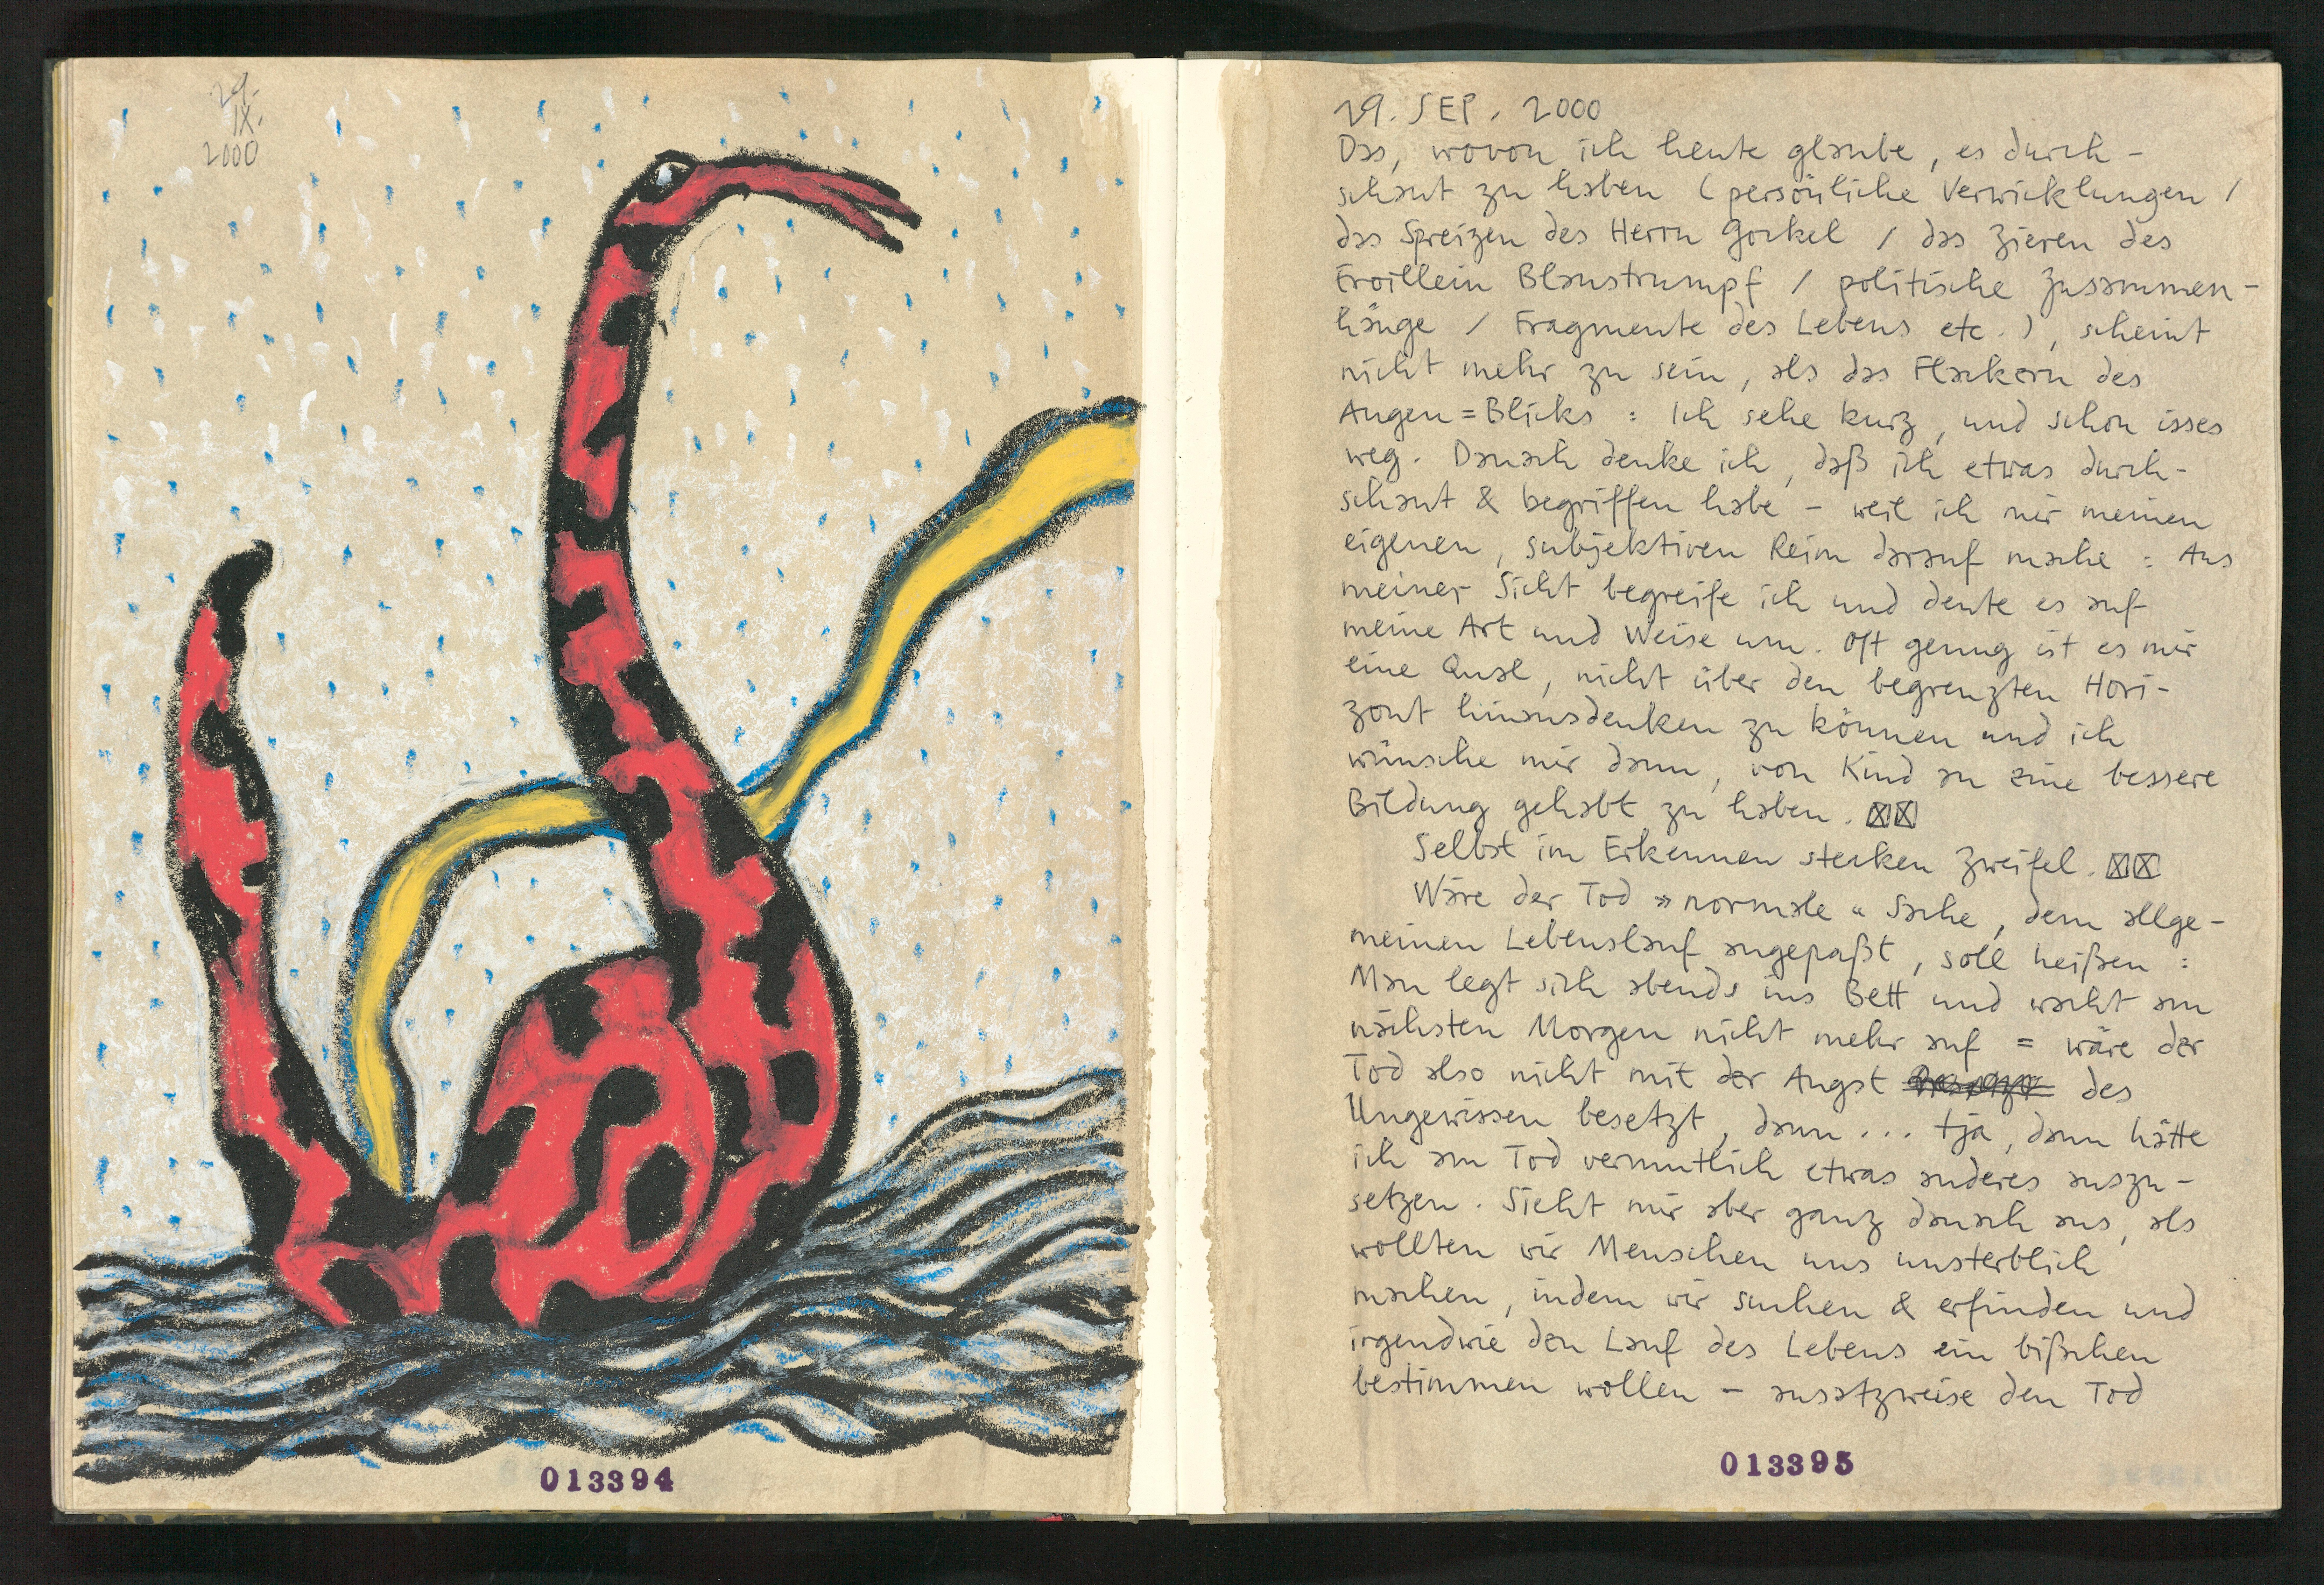 29.
IX.
2000
013394
29. SEP. 2000
Das, wovon ich heute glaube, es durch-
schaut zu haben (persönliche Verwicklungen /
das Spreizen des Herrn Gockel / das Zieren des
Froillein Blaustrumpf / politische Zusammen-
hänge / Fragmente des Lebens etc.), scheint
nicht mehr zu sein, als das Flackern des
Augen=Blicks: Ich sehe kurz, und schon isses
weg. Danach denke ich, daß ich etwas durch-
schaut & begriffen habe – weil ich mir meinen
eigenen, subjektiven Reim darauf mache: Aus
meiner Sicht begreife ich und deute es auf
meine Art und Weise um. Oft genug ist es mir
eine Qual, nicht über den begrenzten Hori-
zont hinausdenken zu können und ich
wünsche mir dann, von Kind an eine bessere
Bildung gehabt zu haben. ☒☒
Selbst im Erkennen stecken Zweifel. ☒☒
Wäre der Tod »normale« Sache, dem allge-
meinen Lebenslauf angepaßt, soll heißen:
Man legt sich abends ins Bett und wacht am
nächsten Morgen nicht mehr auf = wäre der
Tod also nicht mit der Angst des
Ungewissen besetzt, dann... tja, dann hätte
ich am Tod vermutlich etwas anderes auszu-
setzen. Sieht mir aber ganz danach aus, als
wollten wir Menschen uns unsterblich
machen, indem wir suchen & erfinden und
irgendwie den Lauf des Lebens ein bißchen
bestimmen wollen – ansatzweise den Tod
013395